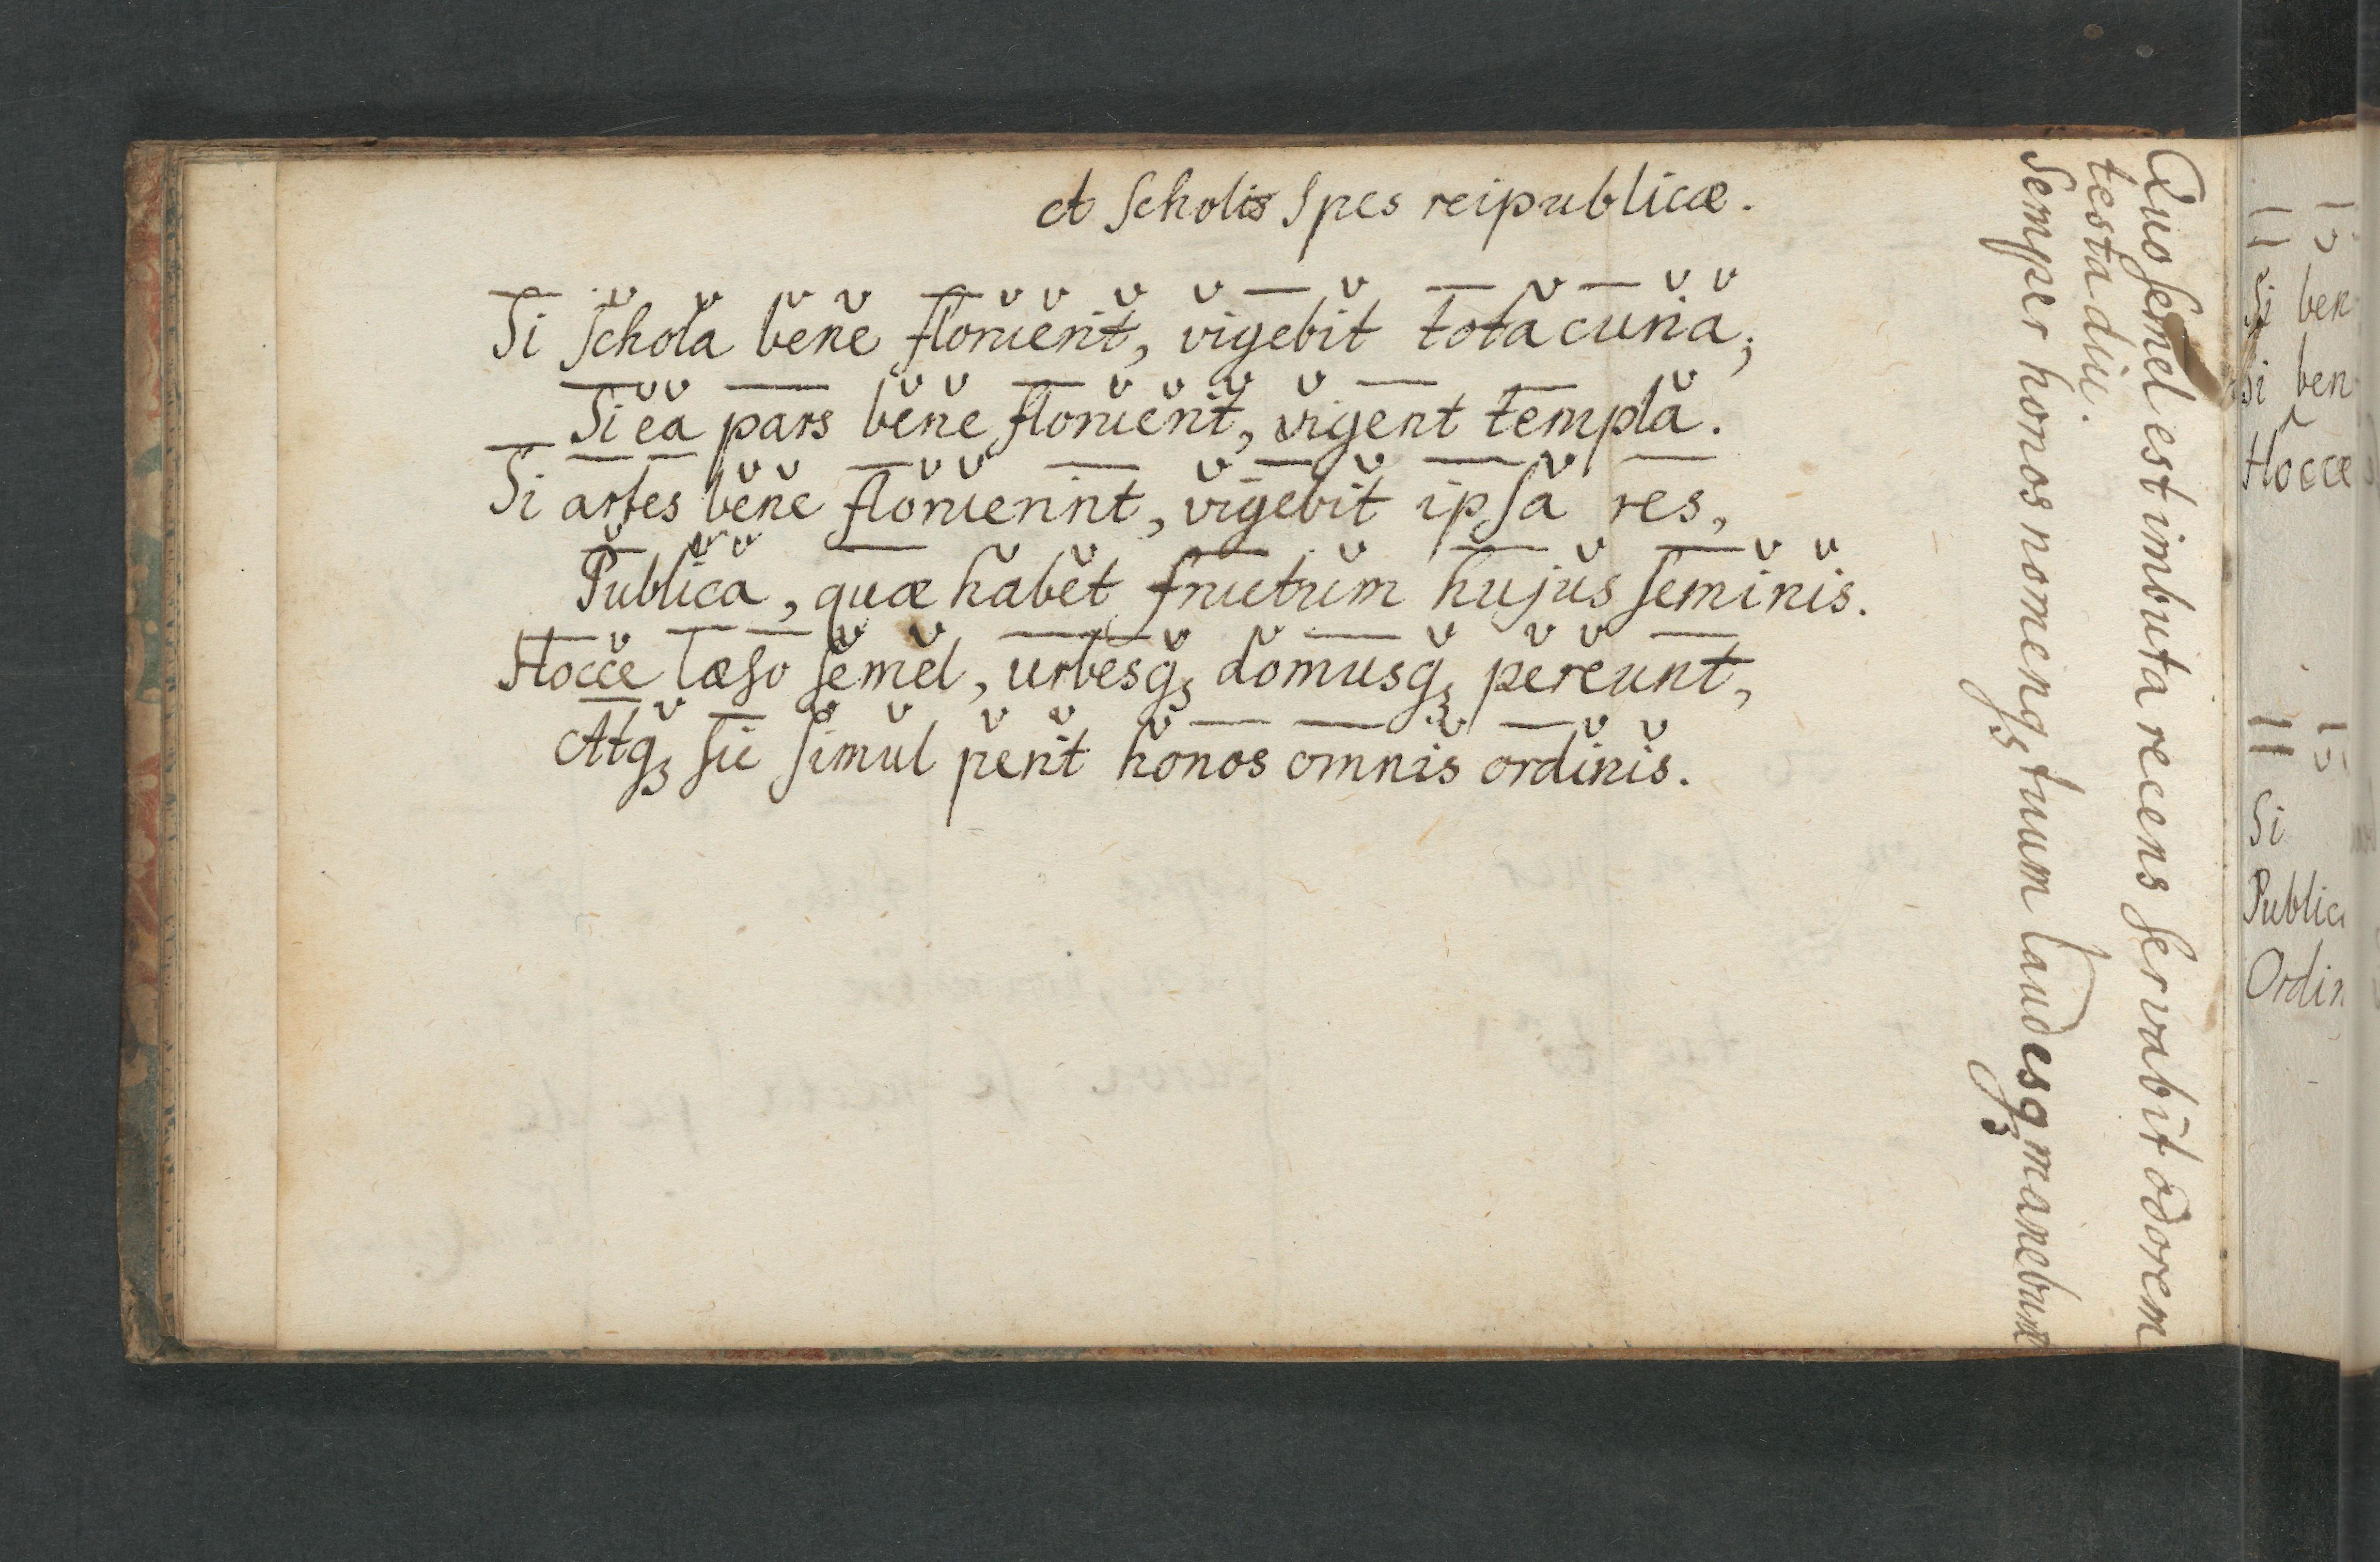 A Scholis Spes reipublicæ.
Si Schola bene floruerit, vigebit tota curia;
Si ea pars bene floruerit, vigent templa.
Si artes bene floruerint, vigebit ipsa res,
Publica, quæ habet fructum hujus seminis.
Hocce læso semel, urbesq₃ domusq₃ pereunt,
Atq₃ sic simul perit honos omnis ordinis.
Quo semel est imbuta recens servabit odorem
testa diu.
Semper honos nomenq₃ tuum laudesq₃ manebunt
Si ben
Si ben
Hocce
Si
Public
Ordin